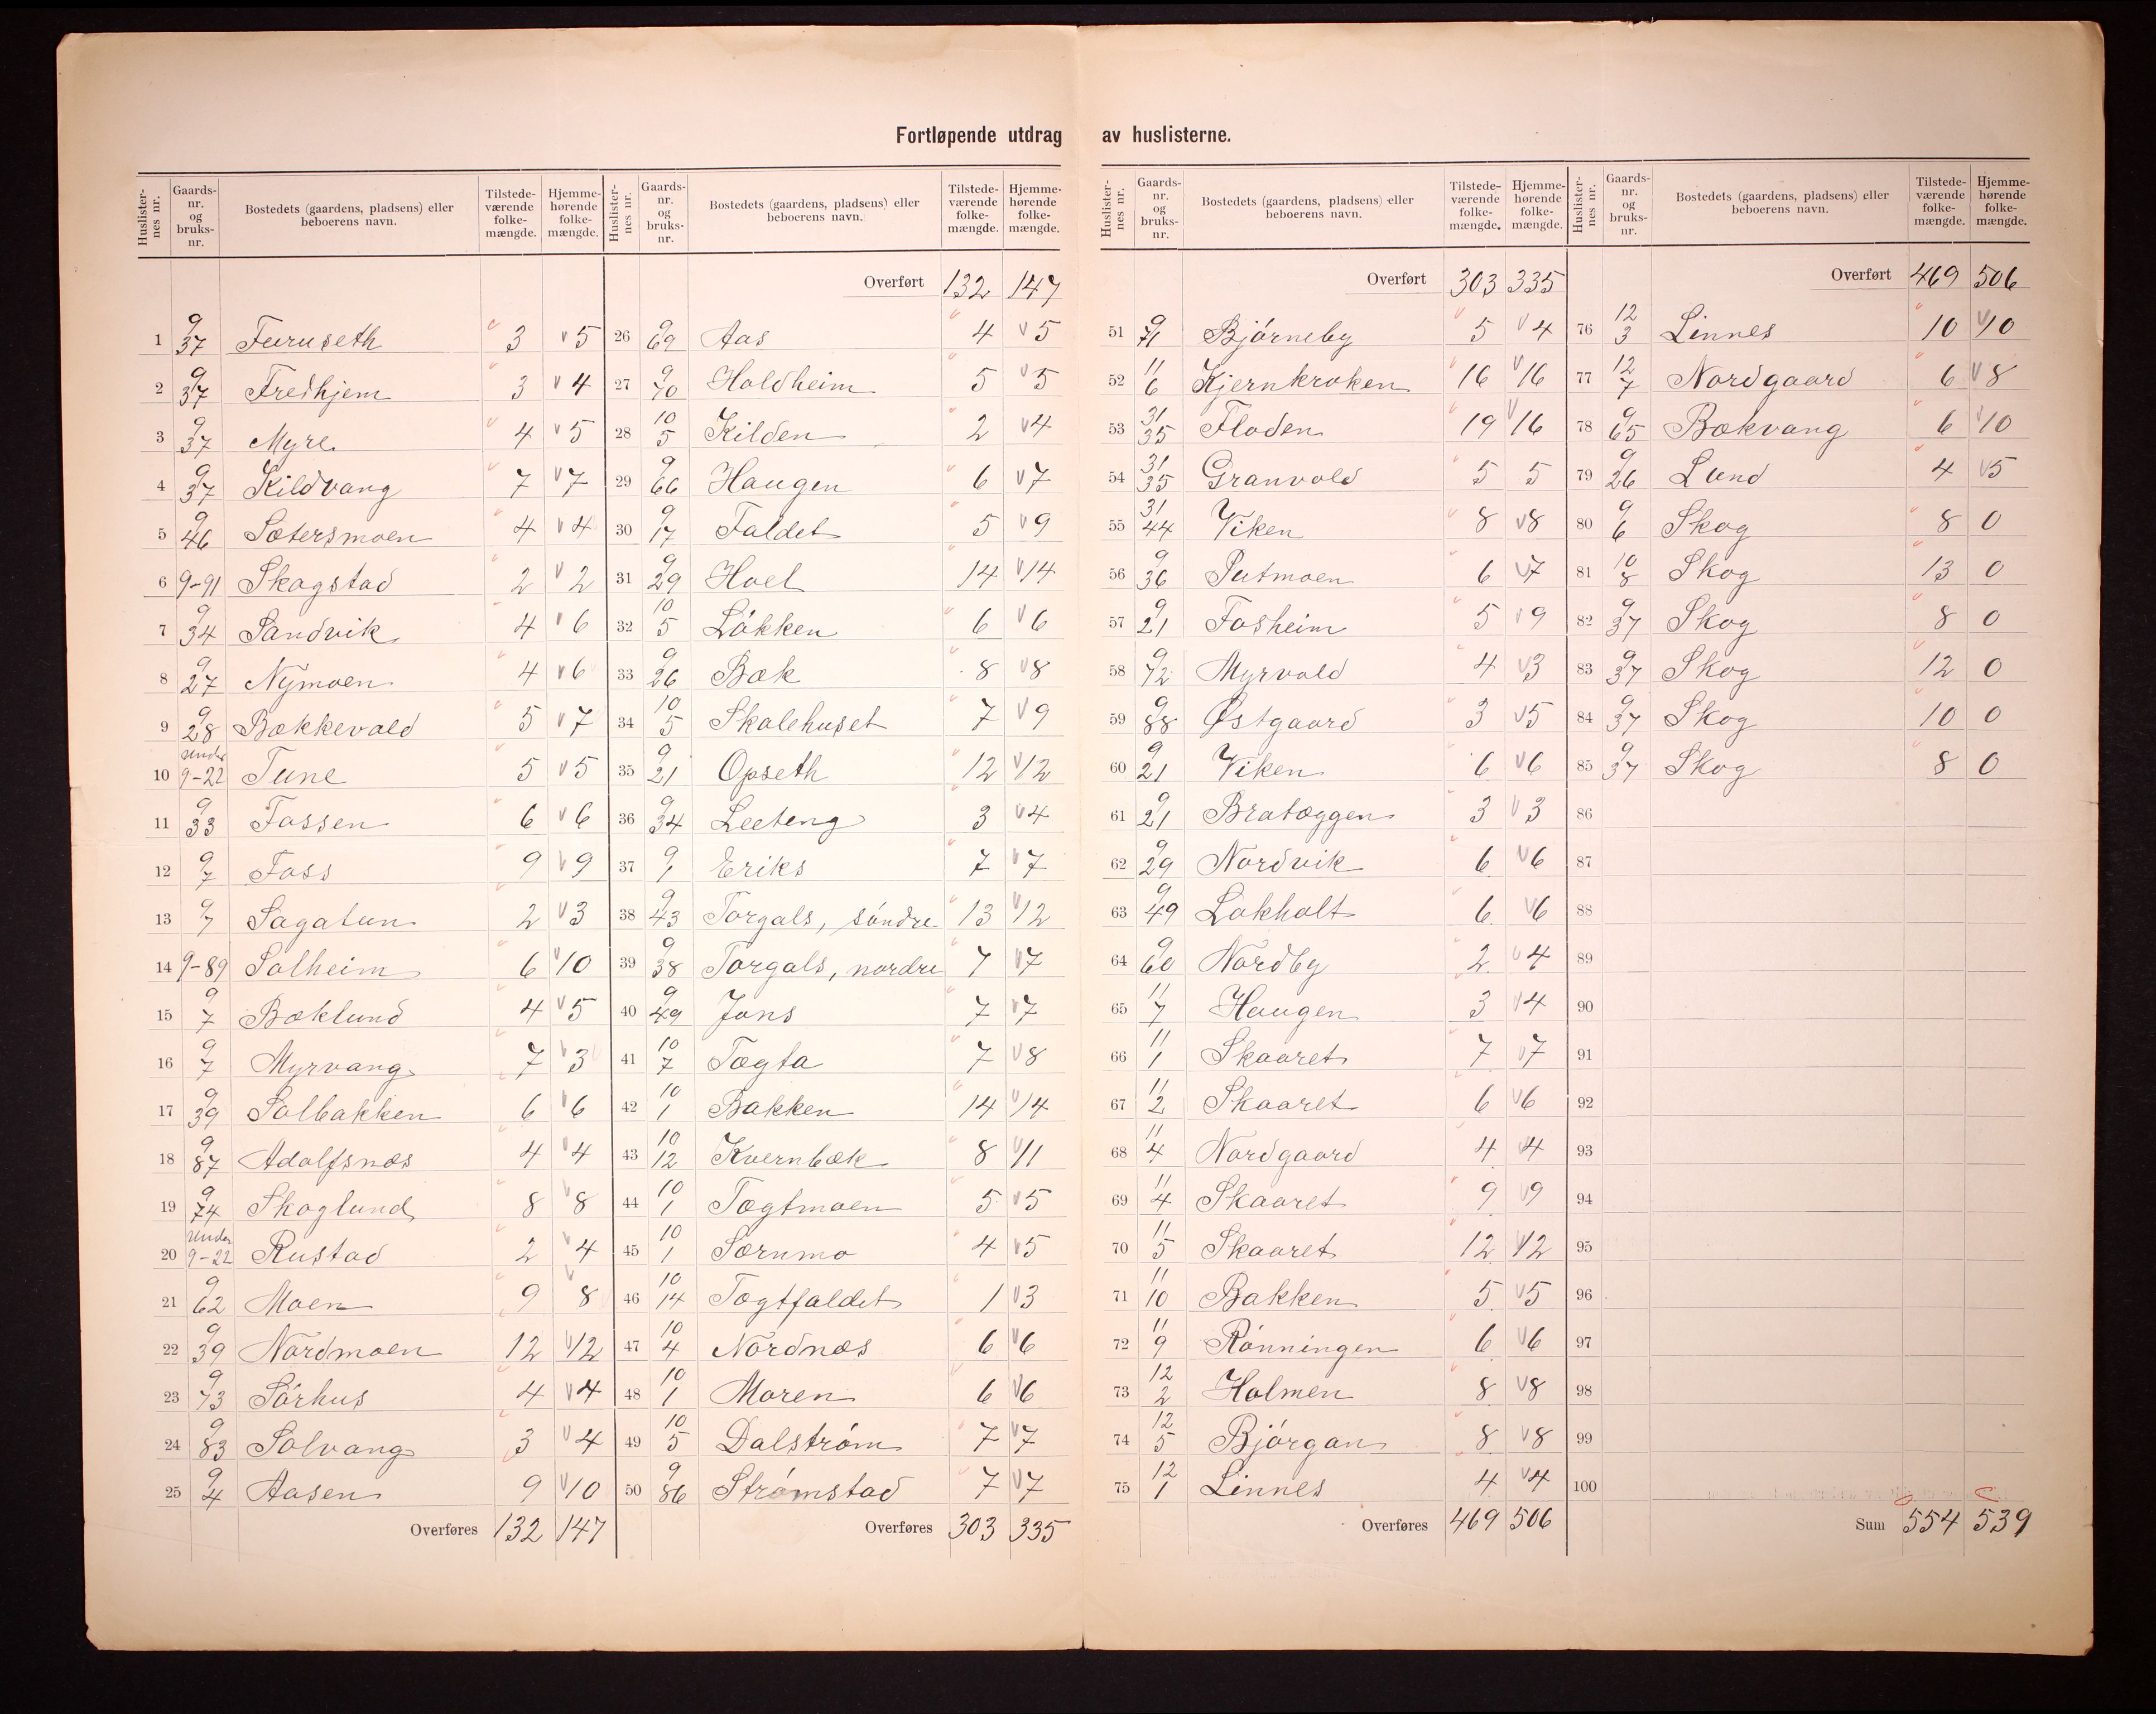 Fortløpende utdrag av huslisterne.
Huslisternes nr. Gaards-nr. og bruks-nr. Bostedets (gaardens, pladsens) eller beboerens navn. Tilstedeværende folkemængde. Hjemmehørende folkemængde.
1 9/37 Furuseth 3 v 5
2 9/37 Fredhjem 3 v 4
3 9/37 Myre 4 v 5
4 9/37 Kildvang 7 v 7
5 9/46 Sætersmoen 4 v 4
6 9-91 Skogstad 2 v 2
7 9/34 Sandvik 4 v 6
8 9/27 Nymoen 4 v 6
9 9/28 Bækkevold 5 v 7
10 under 9-22 Tune 5 v 5
11 9/33 Fossen 6 v 6
12 9/7 Foss 9 v 9
13 9/7 Sagatun 2 v 3
14 9-89 Solheim 6 v 10
15 9/7 Bæklund 4 v 5
16 9/7 Myrvang 7 v 3
17 9/39 Solbakken 6 v 6
18 9/87 Adolfsnæs 4 v 4
19 9/74 Skoglund 8 v 8
20 under 9-22 Rustad 2 v 4
21 9/62 Moen 9 v 8
22 9/39 Nordmoen 12 v 12
23 9/73 Sörhus 4 v 4
24 9/83 Solvang 3 v 4
25 9/4 Aasen 9 v 10
Overføres 132 147
Huslisternes nr. Gaards-nr. og bruks-nr. Bostedets (gaardens, pladsens) eller beboerens navn. Tilstedeværende folkemængde. Hjemmehørende folkemængde.
Overført 132 147
26 9/69 Aas 4 v 5
27 9/70 Holdheim 5 v 5
28 10/5 Kilden 2 v 4
29 9/66 Haugen 6 v 7
30 9/17 Faldet 5 v 9
31 9/29 Hoel 14 v 14
32 10/5 Lökken 6 v 6
33 9/26 Bæk 8 v 8
34 10/5 Skolehuset 7 v 9
35 9/21 Opseth 12 v 12
36 9/34 Leeteng 3 v 4
37 9/1 Eriks 7 v 7
38 9/43 Torgals, söndre 13 v 12
39 9/38 Torgals, nordre 7 v 7
40 9/49 Jons 7 v 7
41 10/7 Tøgta 7 v 8
42 10/1 Bakken 14 v 14
43 10/12 Kvernbæk 8 v 11
44 10/1 Tøgtmoen 5 v 5
45 10/1 Sørnmo 4 v 5
46 10/14 Tøgtfaldet 1 v 3
47 10/4 Nordnæs 6 v 6
48 10/1 Moren 6 v 6
49 10/5 Dalström 7 v 7
50 9/86 Strömstad 7 v 7
Overføres 303 335
Huslisternes nr. Gaards-nr. og bruks-nr. Bostedets (gaardens, pladsens) eller beboerens navn. Tilstedeværende folkemængde. Hjemmehørende folkemængde.
Overført 303 335
51 9/71 Björneby 5 v 4
52 11/6 Kjernkroken 16 v 16
53 31/35 Floden 19 v 16
54 31/35 Granvold 5 5
55 31/44 Viken 8 v 8
56 9/36 Putmoen 6 v 7
57 9/21 Fosheim 5 v 9
58 9/72 Myrvold 4 v 3
59 9/88 Östgaard 3 v 5
60 9/21 Viken 6 v 6
61 9/21 Bratæggen 3 v 3
62 9/29 Nordvik 6 v 6
63 9/49 Lokholt 6 v 6
64 9/60 Nordby 2 v 4
65 11/7 Haugen 3 v 4
66 11/1 Skaaret 7 v 7
67 11/2 Skaaret 6 v 6
68 11/4 Nordgaard 4 v 4
69 11/4 Skaaret 9 v 9
70 11/5 Skaaret 12 v 12
71 11/10 Bakken 5 v 5
72 11/9 Rönningen 6 v 6
73 12/2 Holmen 8 v 8
74 12/5 Björgan 8 v 8
75 12/1 Linnes 4 v 4
Overføres 469 506
Huslisternes nr. Gaards-nr. og bruks-nr. Bostedets (gaardens, pladsens) eller beboerens navn. Tilstedeværende folkemængde. Hjemmehørende folkemængde.
Overført 469 506
76 12/3 Linnes 10 v 10
77 12/7 Nordgaard 6 v 8
78 9/65 Bækvang 6 v 10
79 9/26 Lund 4 v 5
80 9/6 Skog 8 0
81 10/8 Skog 13 0
82 9/37 Skog 8 0
83 9/37 Skog 12 0
84 9/37 Skog 10 0
85 9/37 Skog 8 0
86
87
88
89
90
91
92
93
94
95
96
97
98
99
100
Sum 554 539